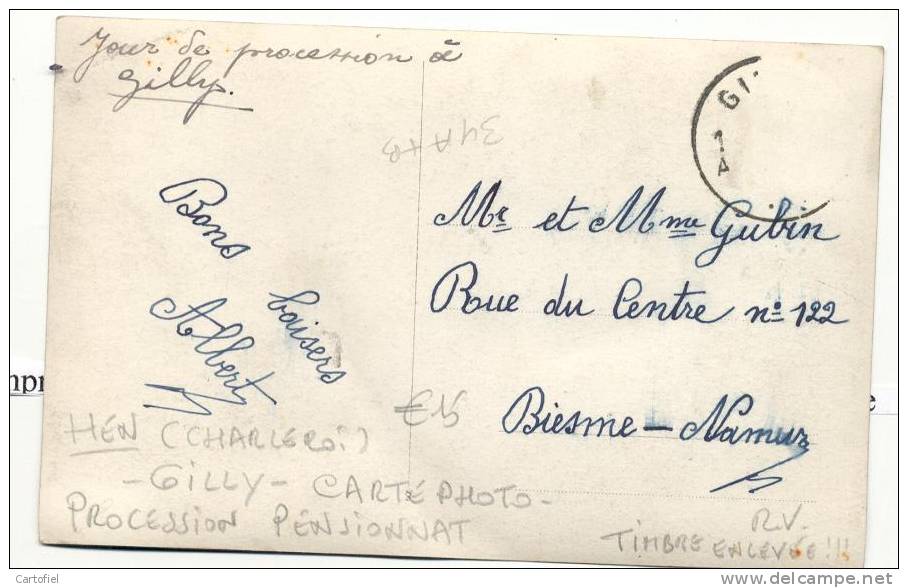 Jour de procession à
Gilly.
GI
1
A
34A+B
Bons
baisers
Albert
Mr et Mme Gubin
Rue du Centre n° 122
Biesme - Namur
€15
HEN (CHARLEROI)
- GILLY - CARTE PHOTO -
PROCESSION PENSIONNAT
R.V.
TIMBRE ENLEVÉE!!!
mpr
e
Cartofiel
delcampe.net